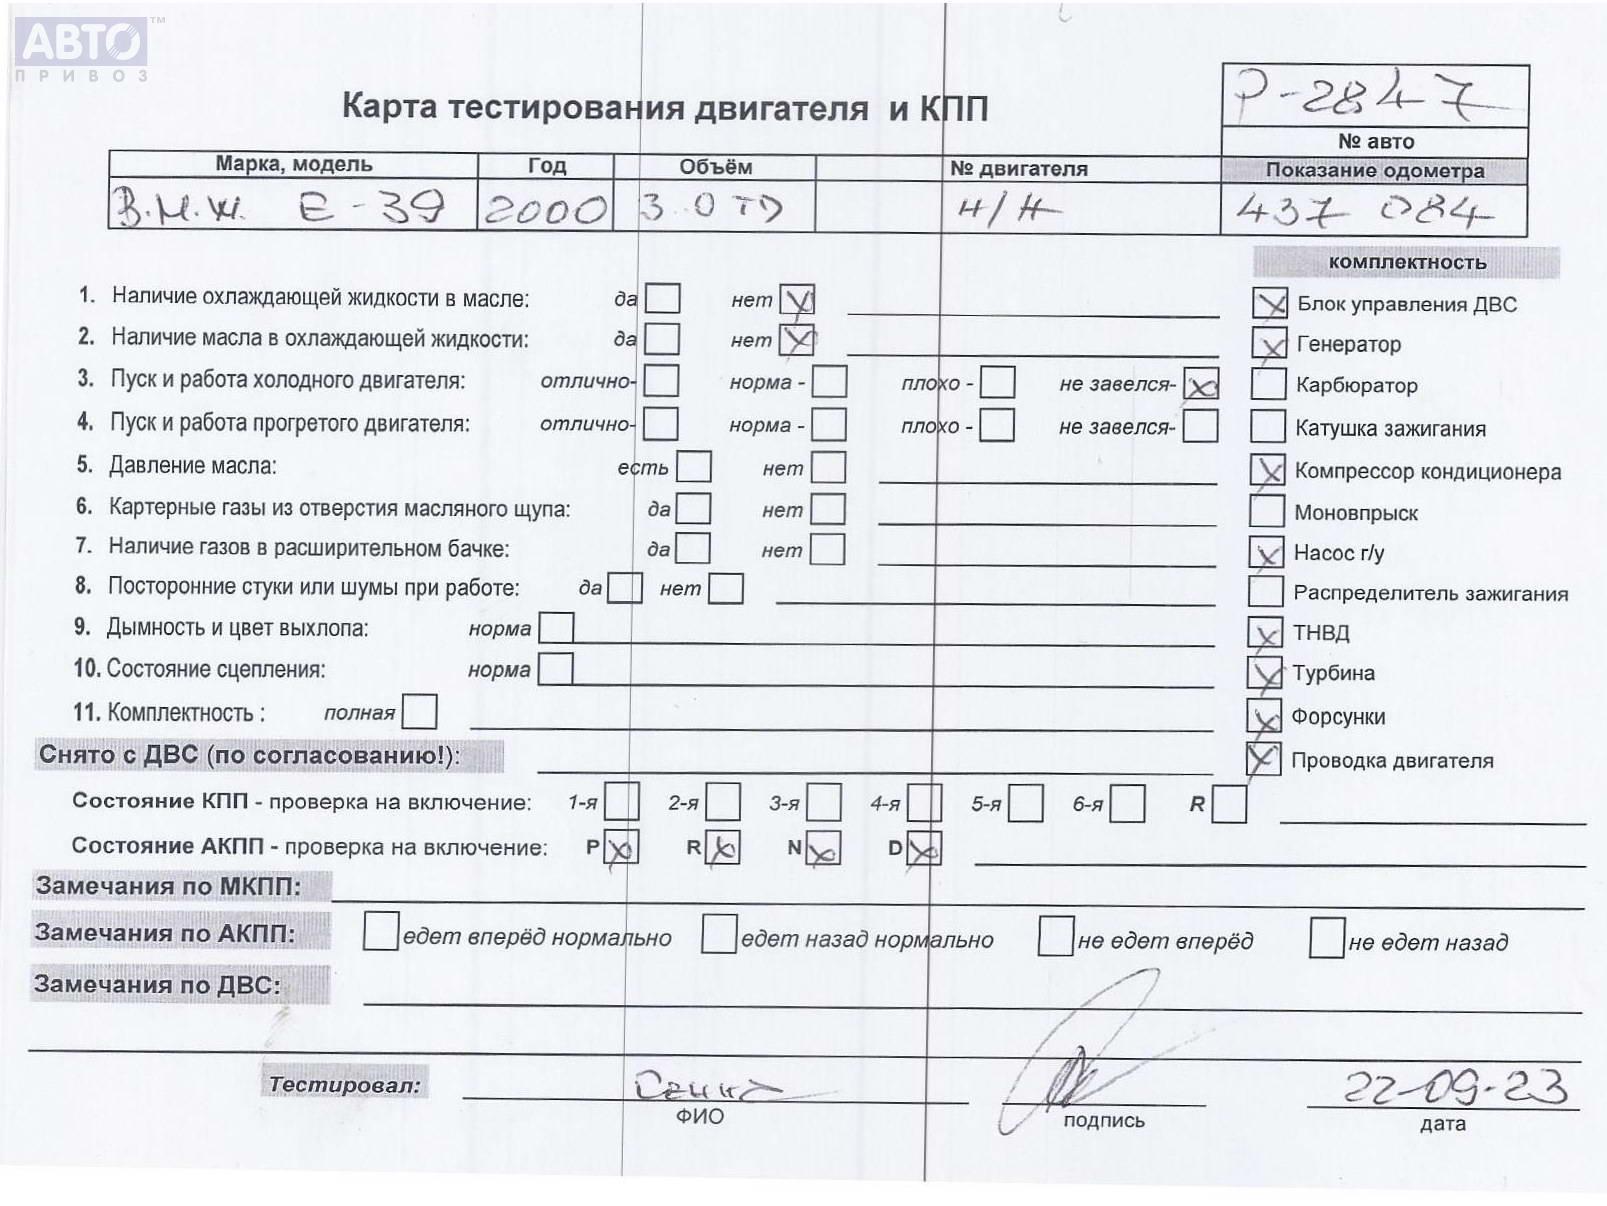 АВТО™
ПРИВОЗ
Р-2847
Карта тестирования двигателя и КПП
№ авто
Марка, модель Год Объём № двигателя Показание одометра
В.М.Ж. Е-39 2000 3.0 TD н/н 437 084
комплектность
1. Наличие охлаждающей жидкости в масле: да нет X
X Блок управления ДВС
2. Наличие масла в охлаждающей жидкости: да нет X
X Генератор
3. Пуск и работа холодного двигателя: отлично- норма - плохо - не завелся- X
Карбюратор
4. Пуск и работа прогретого двигателя: отлично- норма - плохо - не завелся-
Катушка зажигания
5. Давление масла: есть нет
X Компрессор кондиционера
6. Картерные газы из отверстия масляного щупа: да нет
Моновпрыск
7. Наличие газов в расширительном бачке: да нет
X Насос г/у
8. Посторонние стуки или шумы при работе: да нет
Распределитель зажигания
9. Дымность и цвет выхлопа: норма
X ТНВД
10. Состояние сцепления: норма
X Турбина
11. Комплектность : полная
X Форсунки
Снято с ДВС (по согласованию!):
X Проводка двигателя
Состояние КПП - проверка на включение: 1-я 2-я 3-я 4-я 5-я 6-я R
Состояние АКПП - проверка на включение: P X R X N X D X
Замечания по МКПП:
Замечания по АКПП: едет вперёд нормально едет назад нормально не едет вперёд не едет назад
Замечания по ДВС:
Тестировал: 22-09-23
ФИО подпись дата